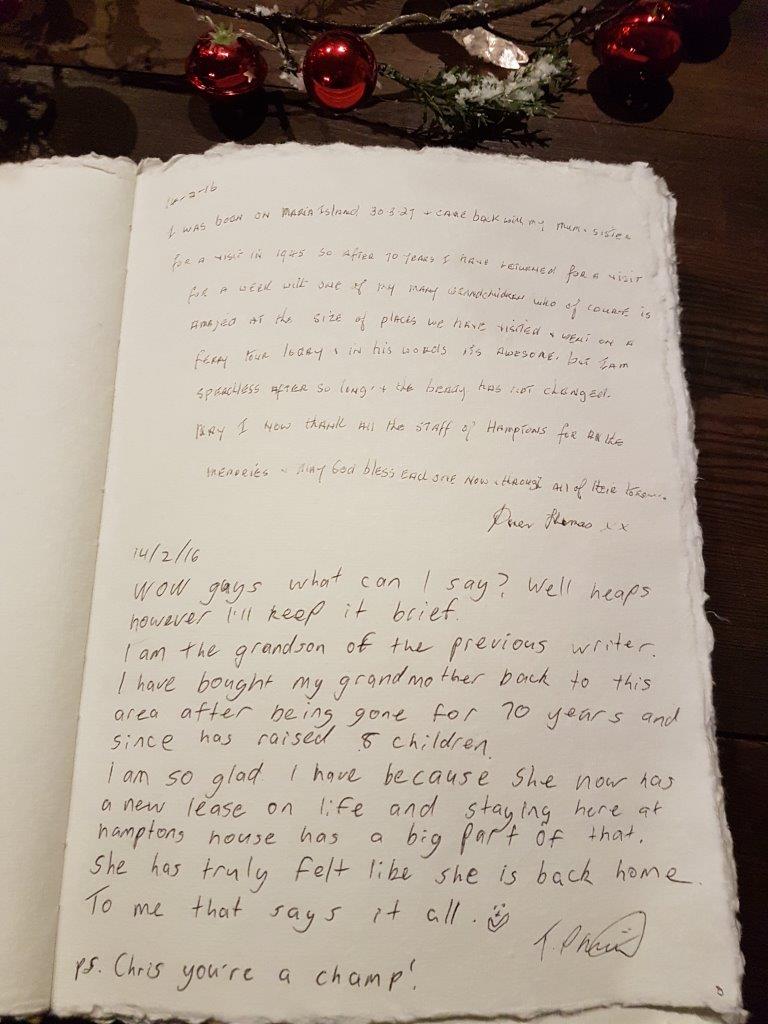 14-2-16
I WAS BORN ON MARIA Island 30-3-27 + CAME back with my mum + SISTER
for a visit in 1945 so AFTER 70 years I HAVE retURNED for a visit
for a week with one of my many GRANDCHILDREN who of course is
amazed at the size of places we have visited + went on a
ferry tour + in his words its awesome, but I am
speachless after so long + the beauty has not changed.
May I now thank all the staff of Hamptons for all the
memories + may God bless each one now + through all of their
Thomas xx
14/2/16
Wow guys what can I say? Well heaps
however I'll keep it brief.
I am the grandson of the previous writer.
I have bought my grandmother back to this
area after being gone for 70 years and
since has raised 8 children.
I am so glad I have because she now has
a new lease on life and staying here at
hamptons house has a big part of that.
She has truly felt like she is back home.
To me that says it all.
ps. Chris you're a champ!